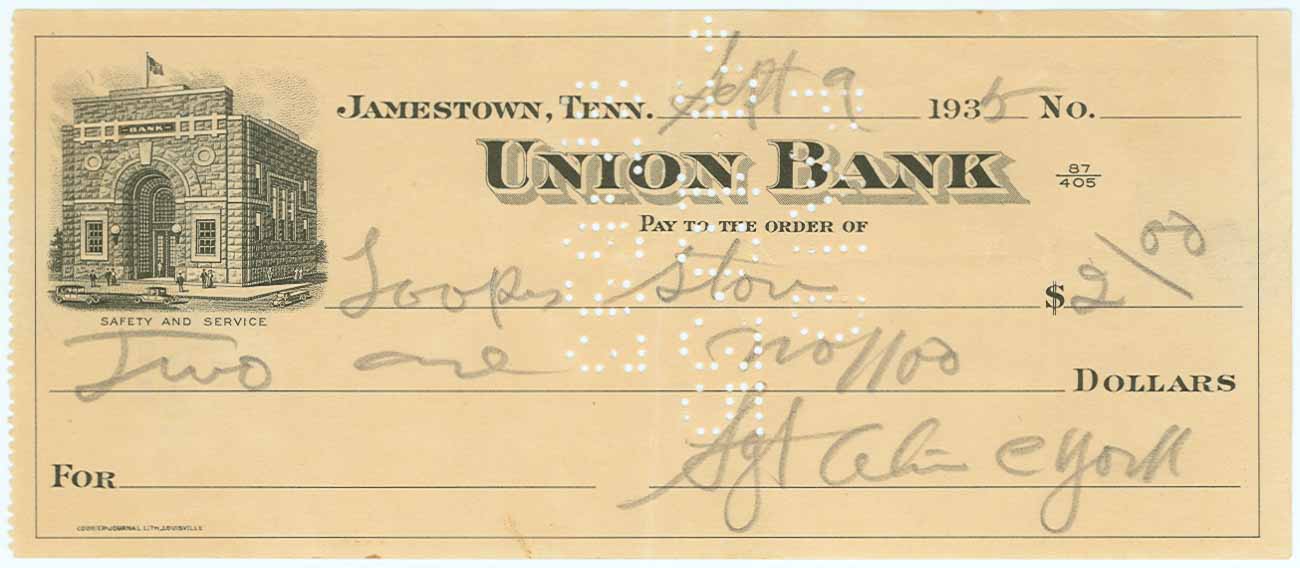 BANK
JAMESTOWN, TENN. Sept 9 1935 No.
UNION BANK
87
405
PAY TO THE ORDER OF
Loopers Store $ 2/00
SAFETY AND SERVICE
Two and no/100 DOLLARS
FOR Sgt Alvin C York
COURIER-JOURNAL LITH., LOUISVILLE